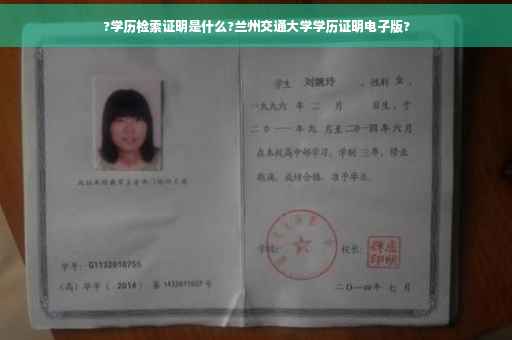 ?学历检索证明是什么?兰州交通大学学历证明电子版?
学生 刘婉玲 ，性别 女 ，
一九九六 年 二 月 日生，于
二〇一一 年 九 月至 二〇一四 年 六 月
在本校高中部学习，学制 三 年，修业
期满，成绩合格，准予毕业。
学校：
校长：
学号： G1132010755
(高) 毕字 ( 2014 ) 第 1432011027 号
二〇一四年 七 月